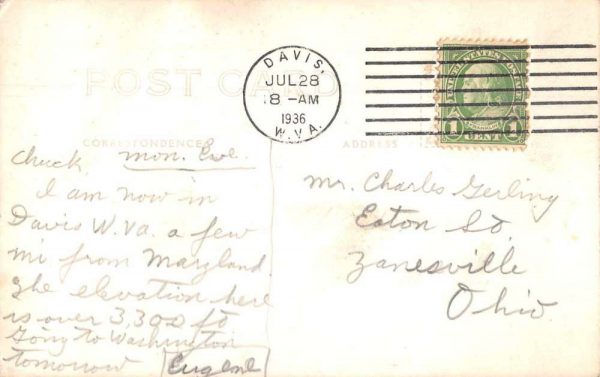 POST CARD
DAVIS,
JUL 28
8 -AM
1936
W.VA.
UNITED STATES POSTAGE
1 CENT 1
CORRESPONDENCE
ADDRESS
Chuck, mon. Eve.
I am now in
Davis W.Va. a few
mi from Maryland
The elevation here
is over 3,300 ft
Going to Washington
tomorrow Eugene
Mr. Charles Gerling
Eaton St.
Zanesville
Ohio.